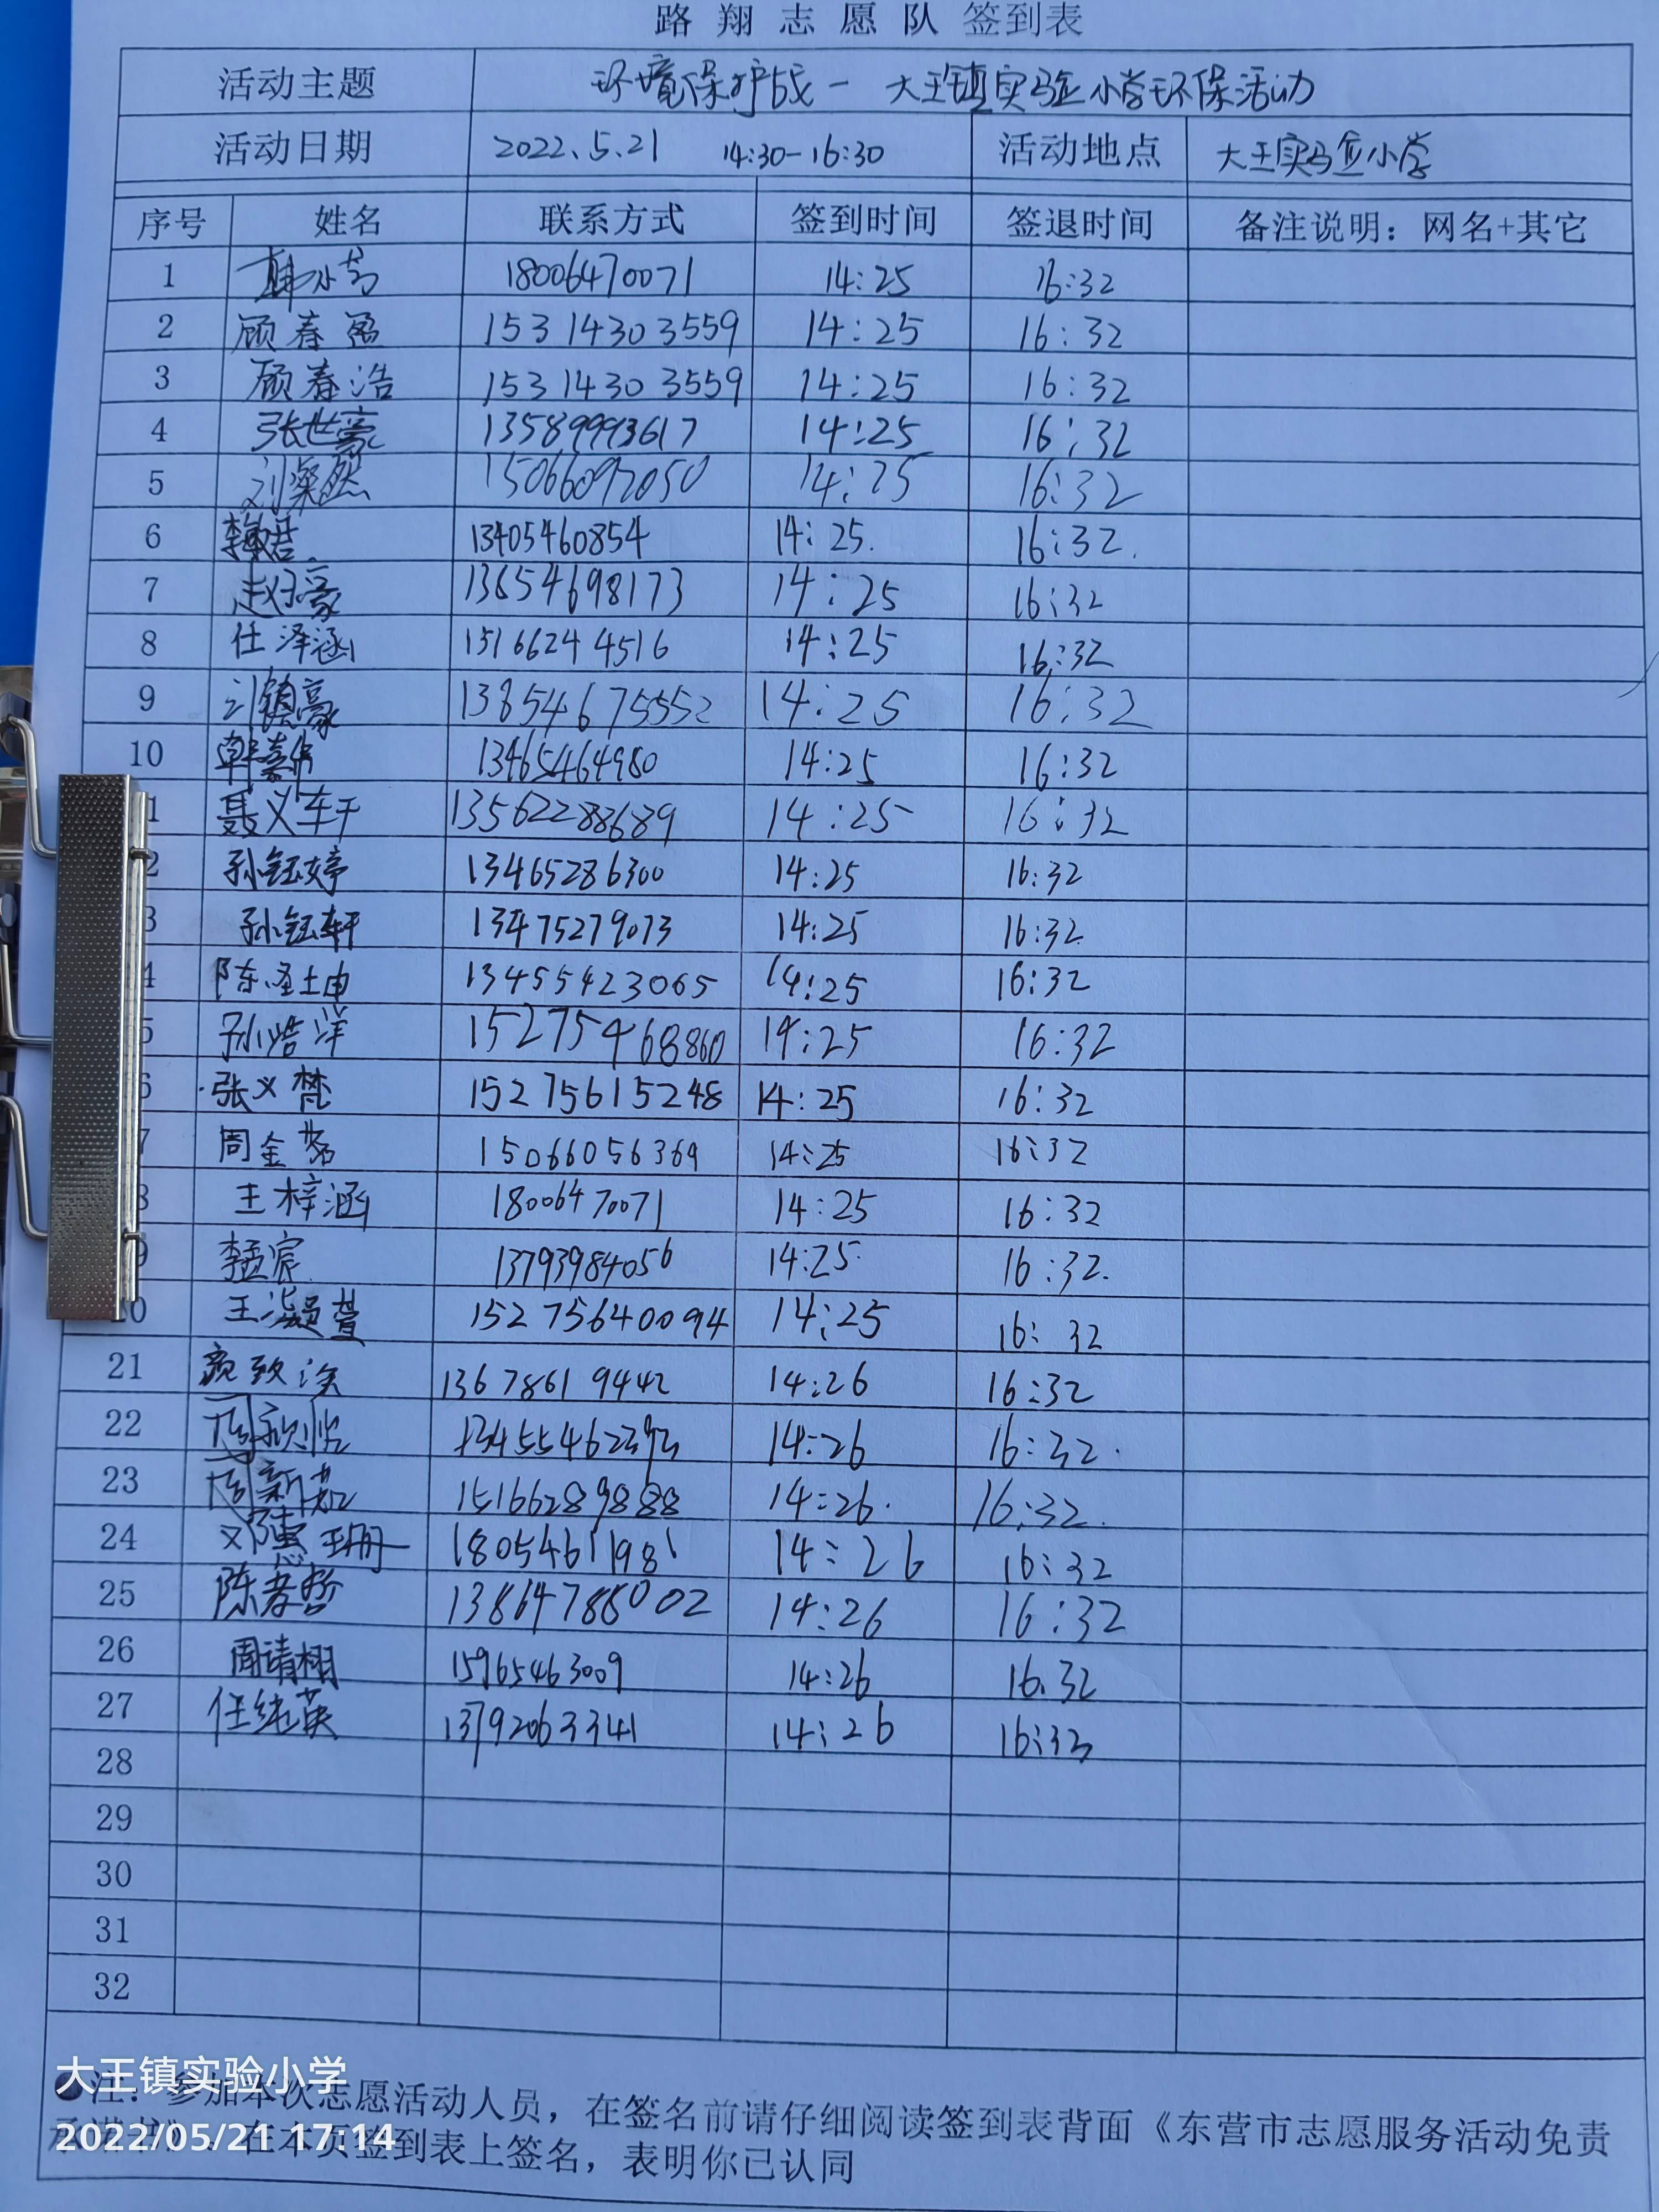 路 翔 志 愿 队 签到表
活动主题 环境保护战一 大王镇实验小学环保活动
活动日期 2022.5.21 14:30-16:30 活动地点 大王实验小学
序号 姓名 联系方式 签到时间 签退时间 备注说明：网名+其它
1 18006470071 14:25 16:32
2 顾春盈 15314303559 14:25 16:32
3 顾春浩 15314303559 14:25 16:32
4 张世豪 13589993617 14:25 16:32
5 刘粲然 15066092050 14:25 16:32
6 13405460854 14:25. 16:32.
7 13654698173 14:25 16:32
8 任泽涵 15166244516 14:25 16:32
9 刘镇豪 13854675552 14:25 16:32
10 13465464980 14:25 16:32
1 聂义轩 13562288689 14:25 16:32
2 孙钰婷 13465286300 14:25 16:32
3 孙钰轩 13475279073 14:25 16:32
4 陈圣土由 13455423065 14:25 16:32
5 孙浩洋 15275468860 14:25 16:32
6 张义梵 15275615248 14:25 16:32
7 周金茹 15066056369 14:25 16:32
8 王梓涵 18006470071 14:25 16:32
9 李孟宸 13793984056 14:25 16:32.
0 王凝萱 15275640094 14:25 16:32
21 13678619442 14:26 16:32
22 周颖怡 14:26 16:32.
23 周新茹 15166289888 14:26. 16:32.
24 邓惠珊 18054611981 14:26 16:32
25 陈孝哲 13864788002 14:26 16:32
26 周靖栩 15965463009 14:26 16.32
27 任纯英 13792063341 14:26 16:32
28
29
30
31
32
注：参加本次志愿活动人员，在签名前请仔细阅读签到表背面《东营市志愿服务活动免责
承诺书》，在本页签到表上签名，表明你已认同
大王镇实验小学
2022/05/21 17:14